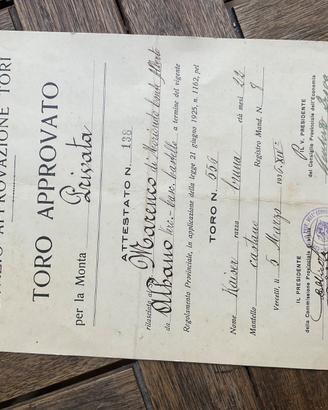 APPROVAZIONE TORI
TORO APPROVATO
per la Monta Privata
ATTESTATO N. 188
rilasciato a Marenco di
da Albano
Regolamento Provinciale, in applicazione della legge 21 giugno 1925, n. 1162, pel
a termine del vigente
TORO N. 556
Nome Kaiser razza bruna età mesi 22
Mantello castano Registro Mand. N. 9
Vercelli, li 5 Marzo
IL PRESIDENTE
della Commissione Provinciale
p. IL V. PRESIDENTE
del Consiglio Provinciale dell'Economia